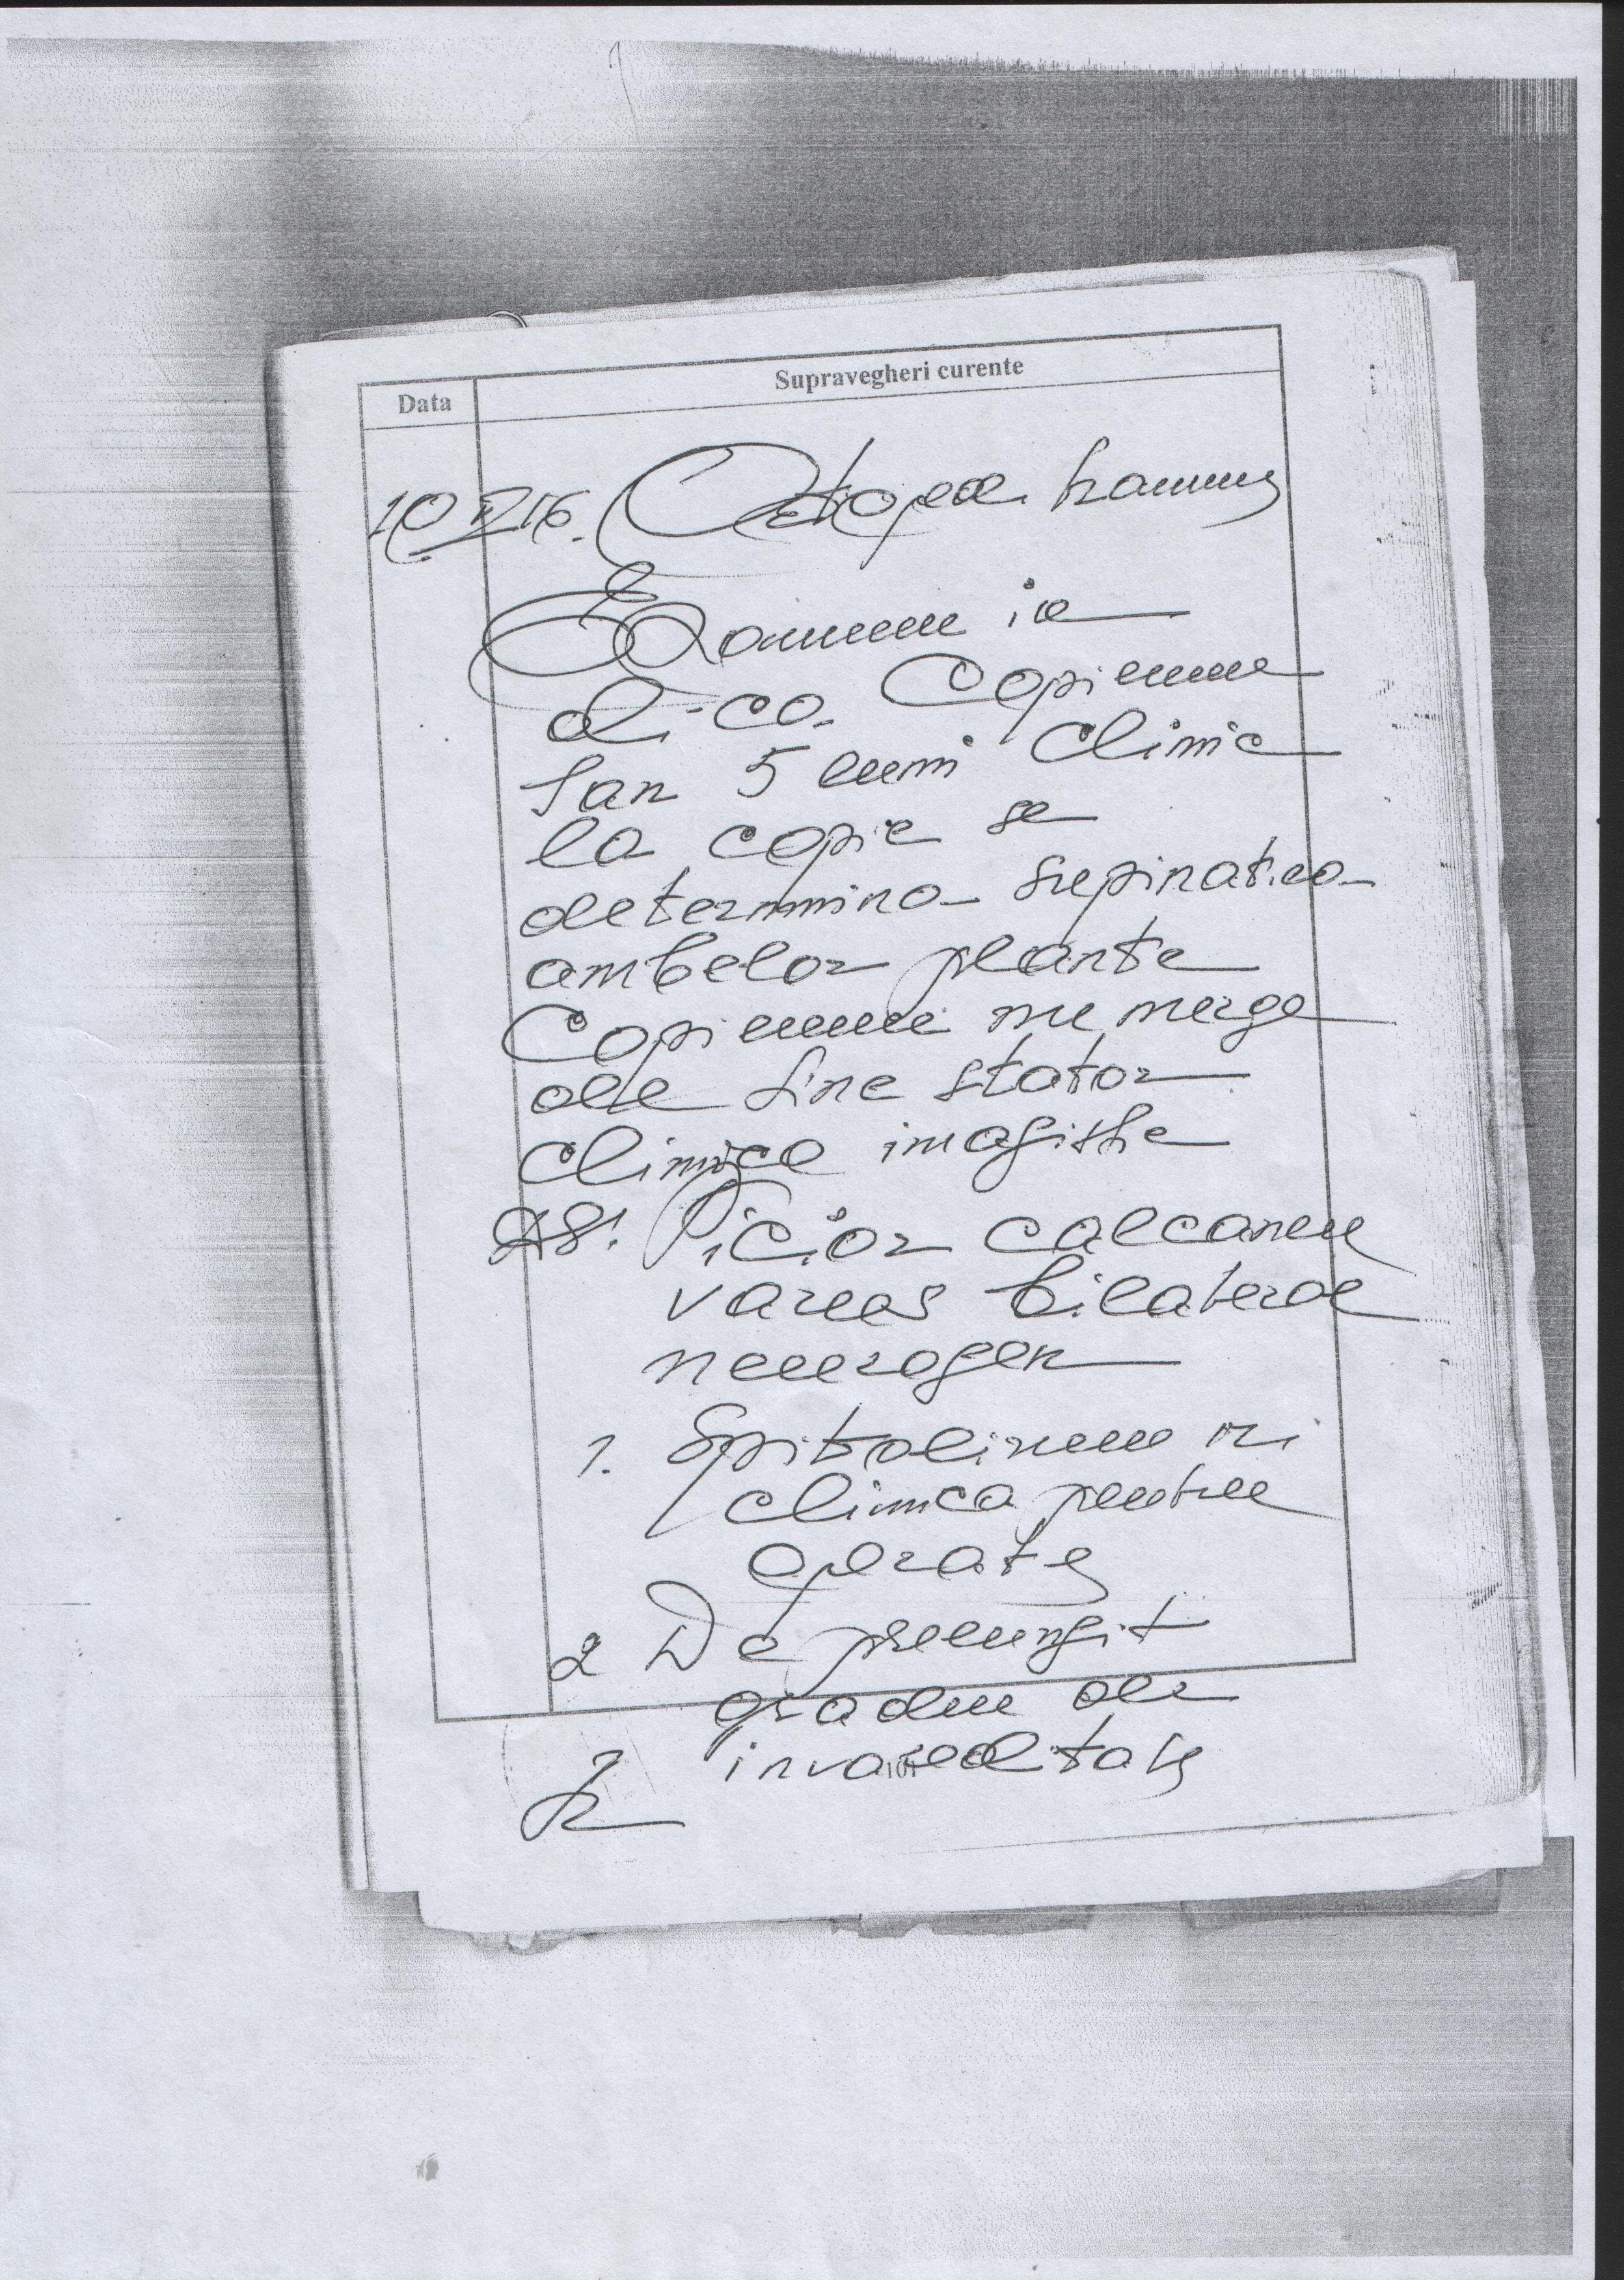 Data Supravegheri curente
10 V 16. Ortoped traum
Examen în
dinco. Copilul
1an 5 luni Clinic
la copil se
determina supinatea
ambelor plante
Copilului nu merge
de sine statator
clinico imagistic
DS! Picior calcaneu
varus bilateral
neurogen
1. Spitalizare în
clinica pentru
operatie
2 De prelungit
gradul de
invaliditate